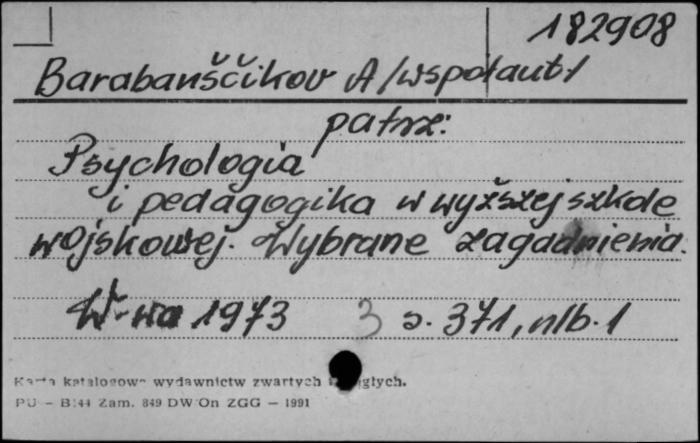 182908
Barabanščikov A /wspołaut/
patrz:
Psychologia
i pedagogika w wyższej szkole
wojskowej. Wybrane zagadnienia.
W-wa 1973 3 s. 371, nlb. 1
Karta katalogowa wydawnictw zwartych i ciągłych.
PU – B/44 Zam. 849 DW On ZGG – 1991